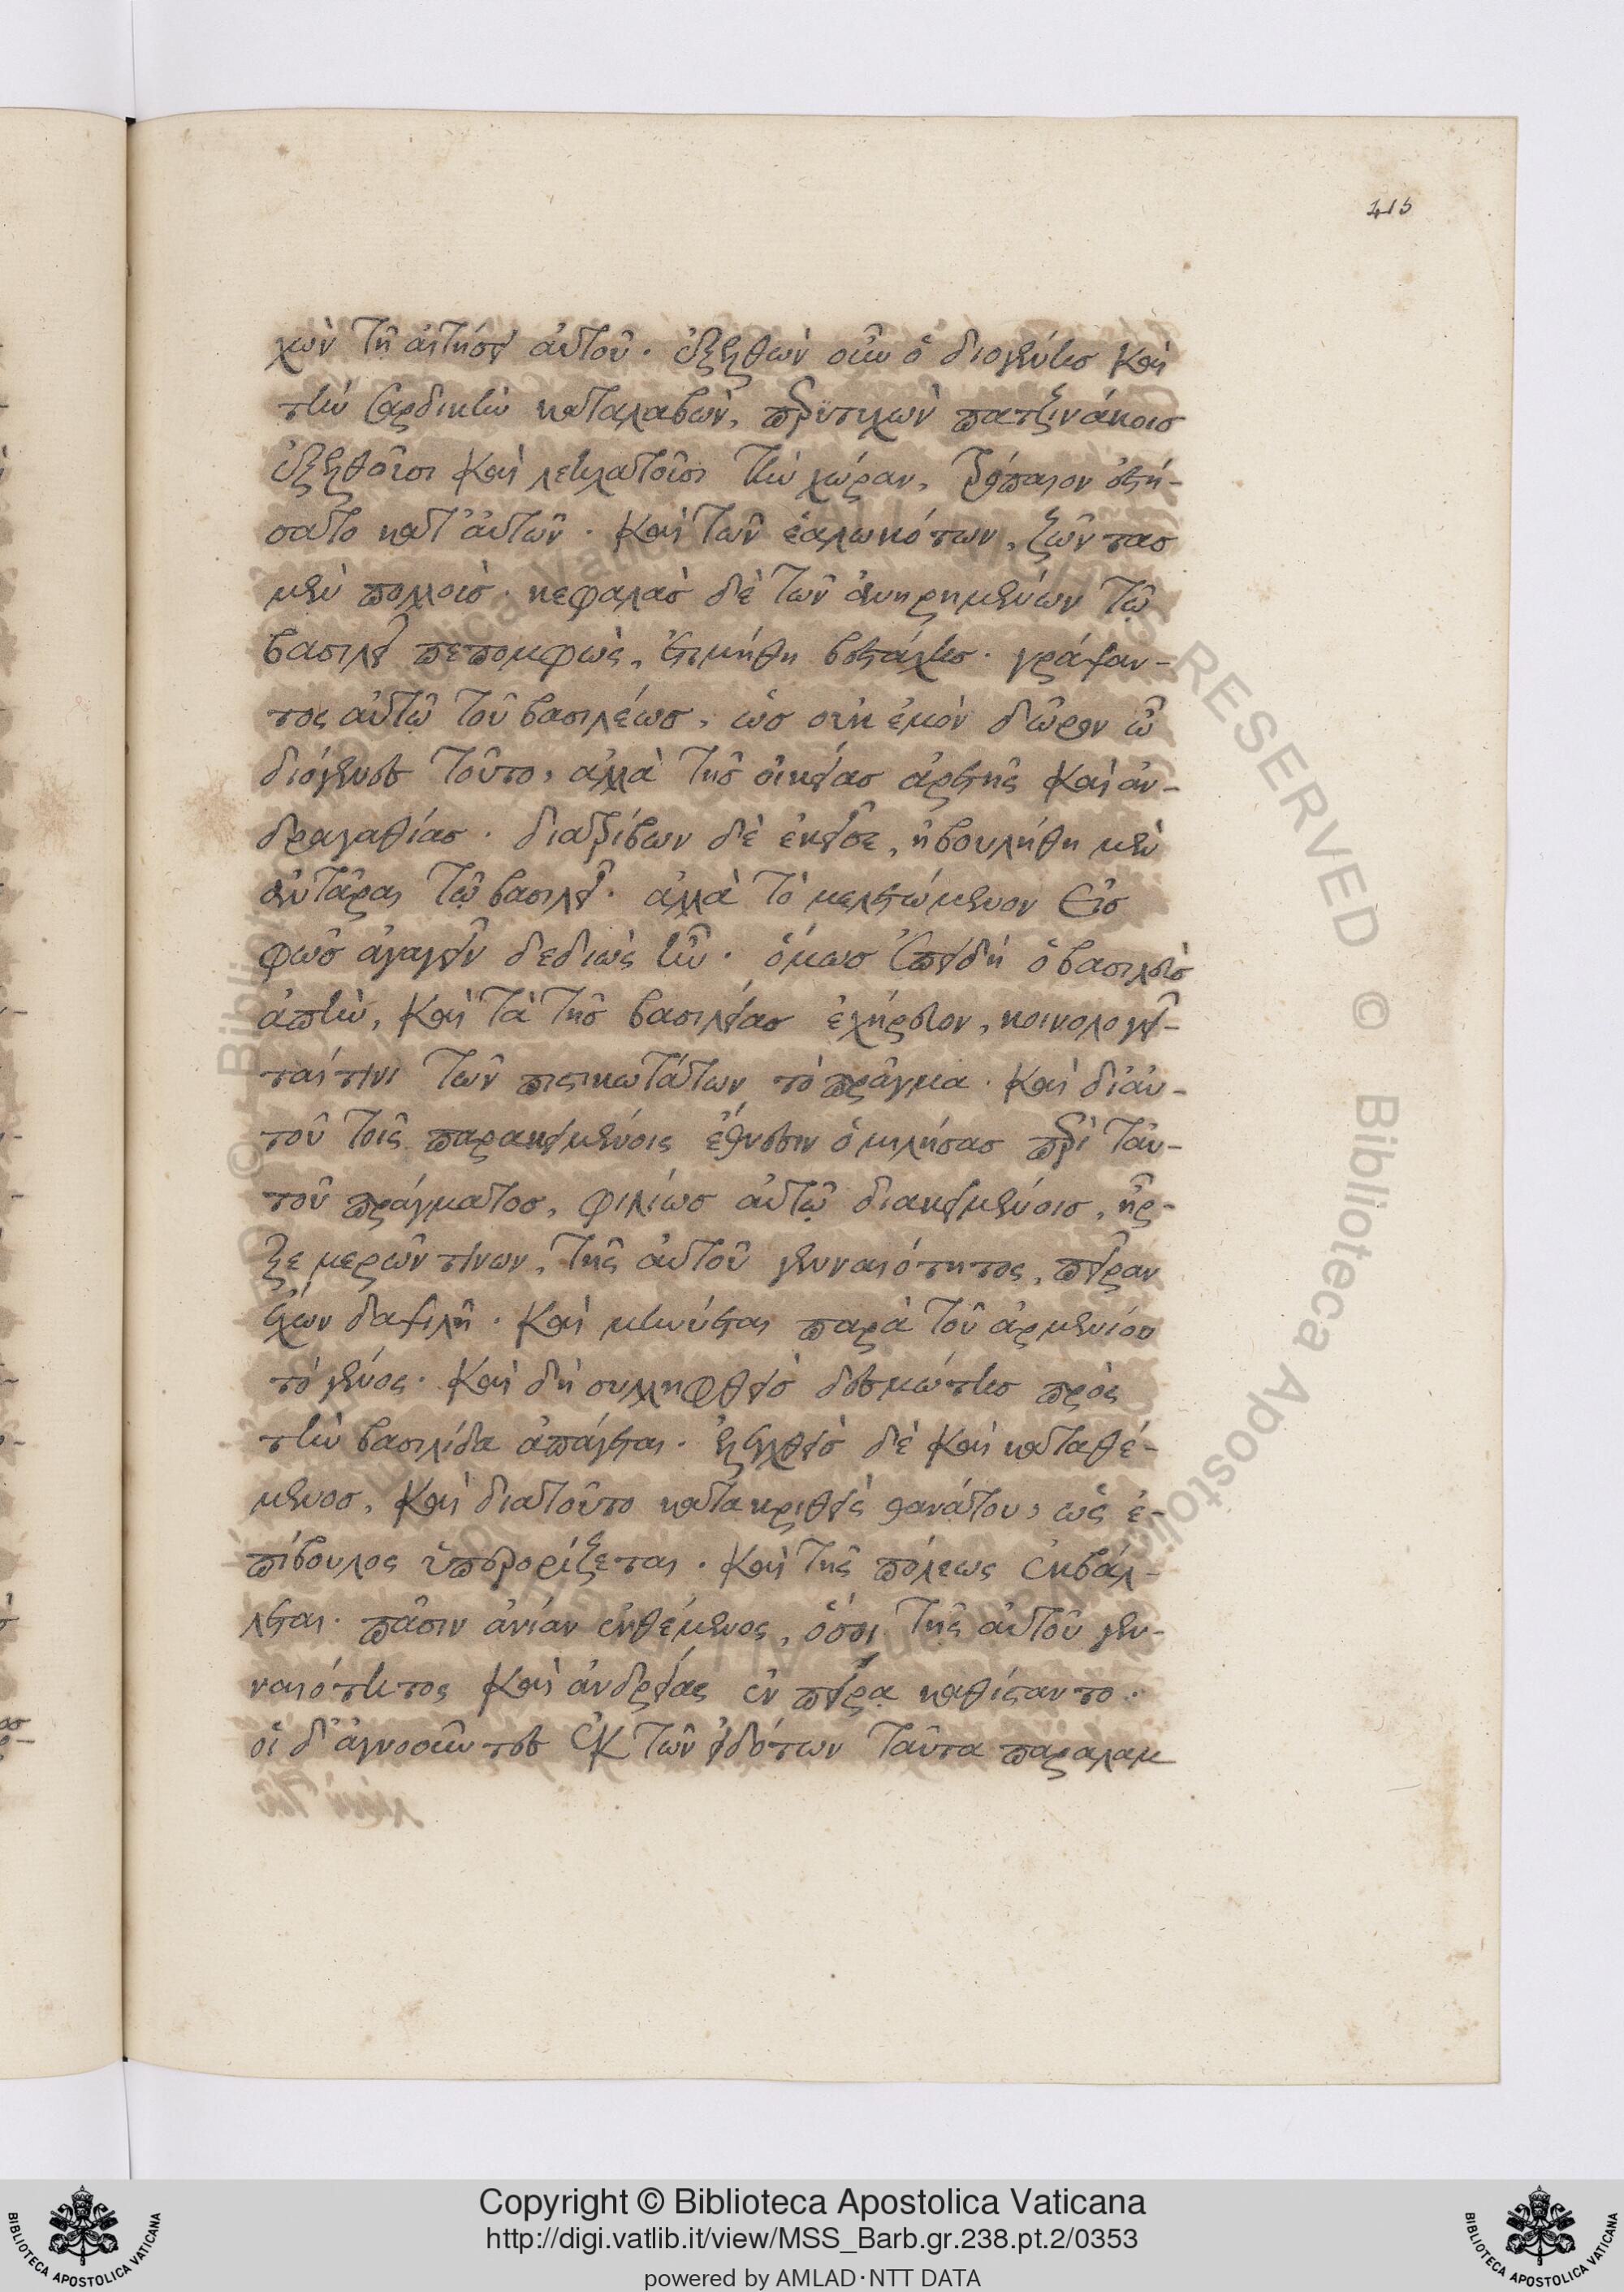 415
χὼν τῆ αἰτήσει αὐτοῦ. ἐξελθὼν οὖν ὁ διογένης καὶ
τὴν σαρδικὴν καταλαβὼν, περιτυχὼν πατζινάκοις
ἐξελθοῦσι καὶ λεηλατοῦσι τὴν χώραν, τρόπαιον ἐστή-
σατο κατ' αὐτῶν. καὶ τῶν ἑαλωκότων, ζῶντας
μὲν πολλοὺς. κεφαλὰς δὲ τῶν ἀνηρημένων τῷ
βασιλεῖ πεπομφὼς, ἐτιμήθη βεστάρχης. γράψαν-
τος αὐτῷ τοῦ βασιλέως, ὡς οὐκ ἐμὸν δῶρον ὦ
διόγενες τοῦτο, ἀλλὰ τῆς οἰκείας ἀρετῆς καὶ ἀν-
δραγαθίας. διατρίβων δὲ ἐκεῖσε, ἠβουλήθη μὲν
ἀντᾶραι τῷ βασιλεῖ. ἀλλὰ τὸ μελετώμενον εἰς
φῶς ἀγαγεῖν δεδιὼς ἦν. ὅμως ἐπειδὴ ὁ βασιλεὺς
ἀπῆν, καὶ τὰ τῆς βασιλείας ἐχήρευον, κοινολογεῖ-
ται τινὶ τῶν πιστικωτάτων τὸ πρᾶγμα. καὶ δι' αὐ-
τοῦ τοῖς παρακειμένοις ἔθνεσιν ὁμιλήσας περὶ τοῦ
τοῦ πράγματος, φιλίως αὐτῷ διακειμένοις, ἦρ-
ξε μερῶν τινων, τῆς αὐτοῦ γενναιότητος, πεῖραν
ἔχων δαψιλῆ. καὶ μηνύεται παρὰ τοῦ ἀρμενίου
τὸ γένος. καὶ δὴ συλληφθεὶς δεσμώτης πρὸς
τὴν βασιλίδα ἀπάγεται. ἐξελεγχθεὶς δὲ καὶ καταθέ-
μενος, καὶ διατοῦτο κατακριθεὶς θανάτου, ὡς ἐ-
πίβουλος ὑπερορίζεται. καὶ τῆς πόλεως ἐκβάλ-
λεται. πᾶσιν ἀνίαν ἐνθέμενος, ὅσοι τῆς αὐτοῦ γεν-
ναιότητος καὶ ἀνδρείας ἐν πείρᾳ καθίσταντο.
οἱ δ' ἀγνοοῦντες ἐκ τῶν εἰδότων ταῦτα παραλαμ
Copyright © Biblioteca Apostolica Vaticana
http://digi.vatlib.it/view/MSS_Barb.gr.238.pt.2/0353
powered by AMLAD·NTT DATA